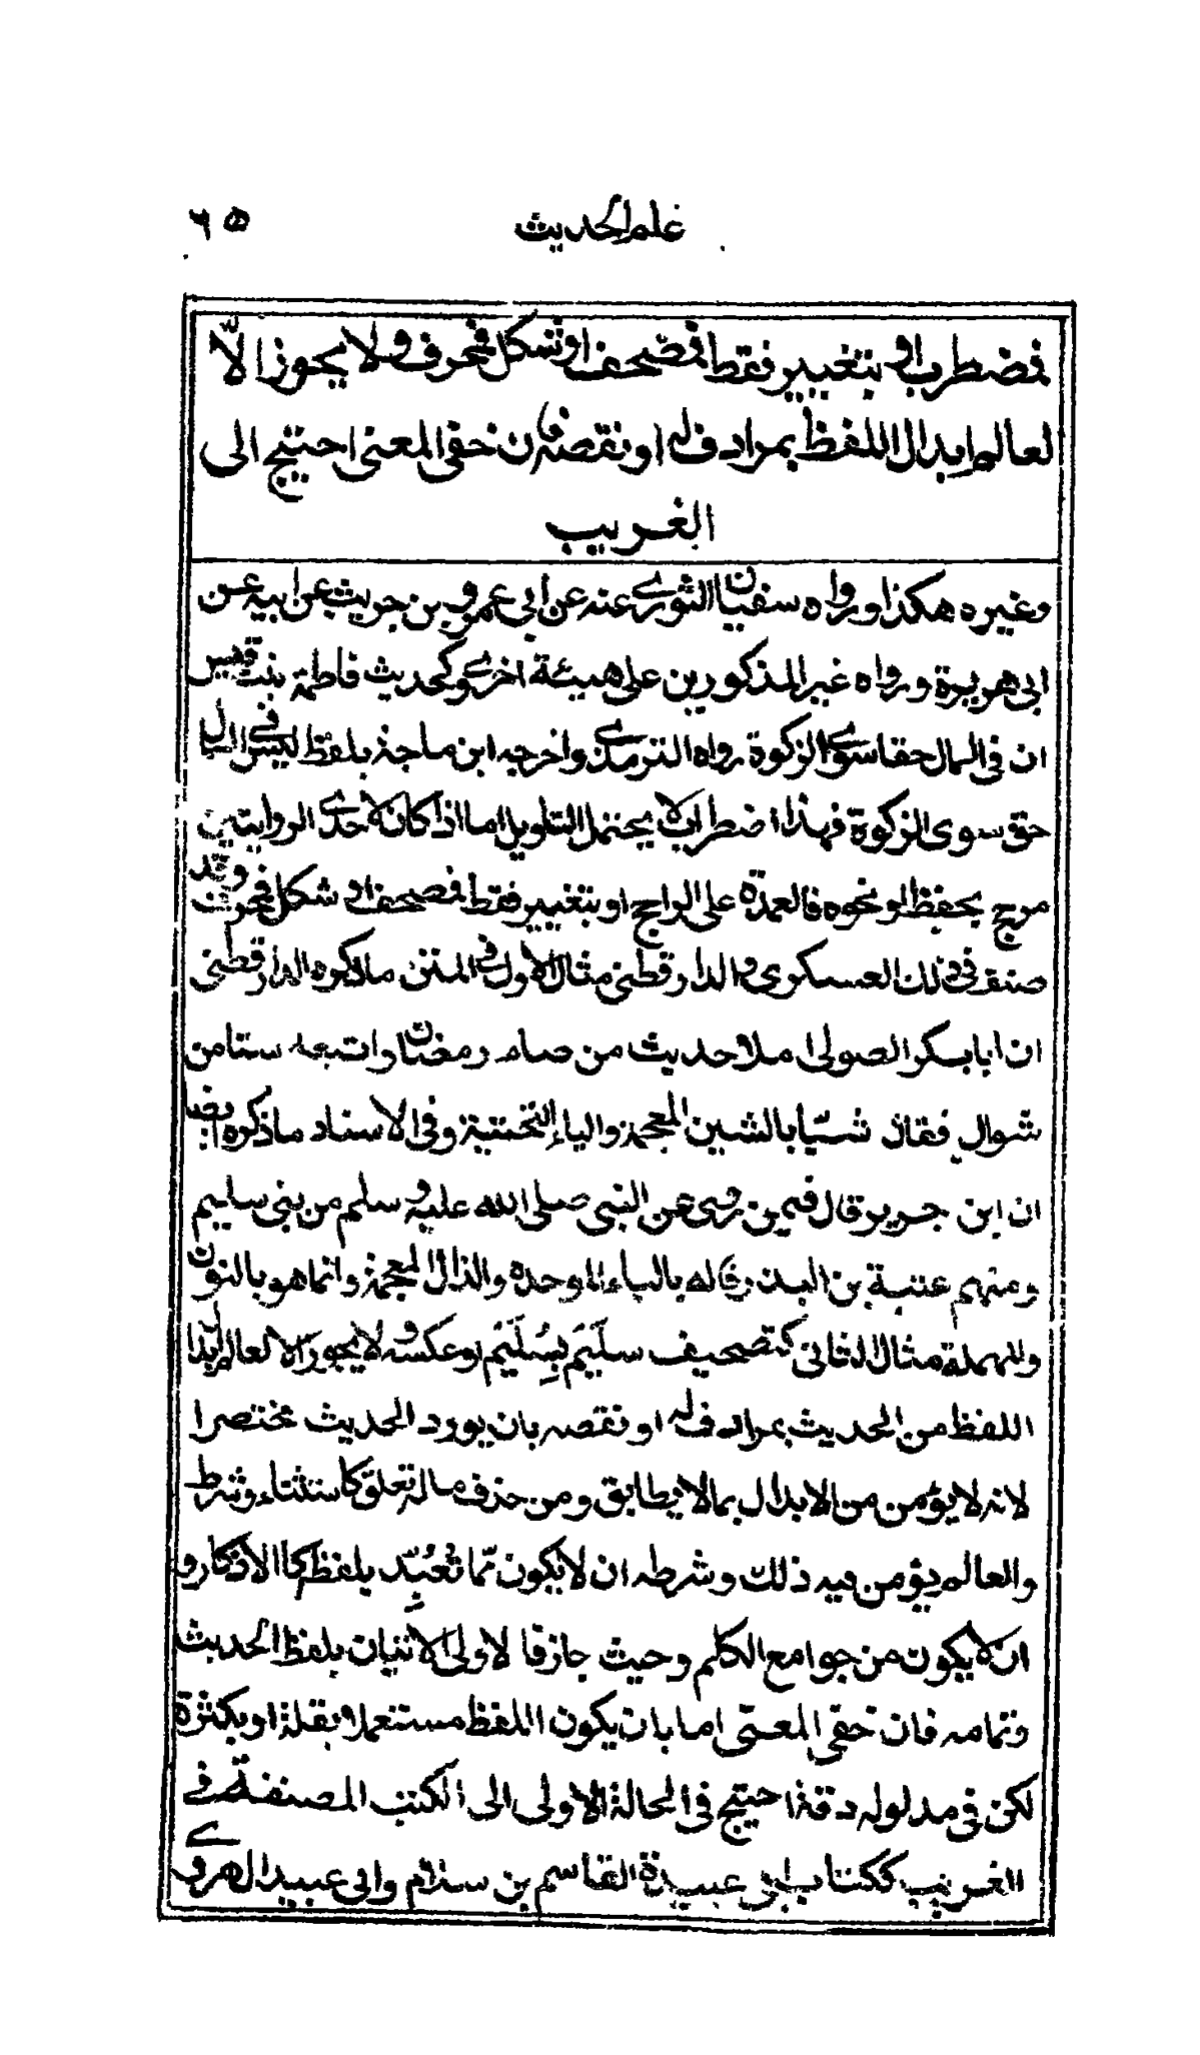 علم الحديث ٦٥
فمضطرب او بتغيير نقط فمصحف او شكل فمحرف ولا يجوز الا
لعالم ابدال اللفظ بمرادف له او نقصه فان خفى المعنى احتيج الى
الغريب
وغيره هكذا ورواه سفيان الثورى عنه عن ابي عمرو بن حريث عن ابيه عن
ابى هريرة ورواه غير المذكورين على هيئة اخرى وكحديث فاطمة بنت قيس
ان فى المال حقا سوى الزكوة رواه الترمذى واخرجه ابن ماجة بلفظ ليس فى المال
حق سوى الزكوة فهذا اضطراب لا يحتمل التاويل اما اذا كان لاحدى الروايتين
مرجح بحفظ او نحوه فالعمدة على الراجح او بتغيير نقط فمصحف او شكل فمحرف وقد
صنف فى ذلك العسكرى والدارقطنى مثال الاول فى المتن ما ذكره الدارقطنى
ان ابا بكر الصولى املا حديث من صام رمضان واتبعه ستا من
شوال فقال شيّا بالشين المعجمة والياء التحتية وفى الاسناد ما ذكره ايضا
ان ابن جرير قال فيمن روى عن النبى صلى الله عليه وسلم من بنى سليم
ومنهم عتبة بن البذر قاله بالباء الموحدة والذال المعجمة وانما هو بالنون
والمهملة مثال الثانى كتصحيف سَلِيَم بِسُلَيَم او عكسه ولا يجوز الا لعالم ابدال
اللفظ من الحديث بمرادف له او نقصه بان يورد الحديث مختصرا
لانه لا يؤمن من الابدال بما لا يطابق ومن حذف ما له تعلق كاستثناء وشرط
والعالم يؤمن فيه ذلك وشرطه ان لا يكون مّما تُعُبِّد بلفظه كالاذكار و
ان لا يكون من جوامع الكلم وحيث جاز فالاولى الاتيان بلفظ الحديث
وتمامه فان خفى المعنى اما بان يكون اللفظ مستعملا بقلة او بكثرة
لكن فى مدلوله دقة احتيج فى الحالة الاولى الى الكتب المصنفة فى
الغريب ككتاب ابى عبيدة القاسم بن سلام وابى عبيد الهروى